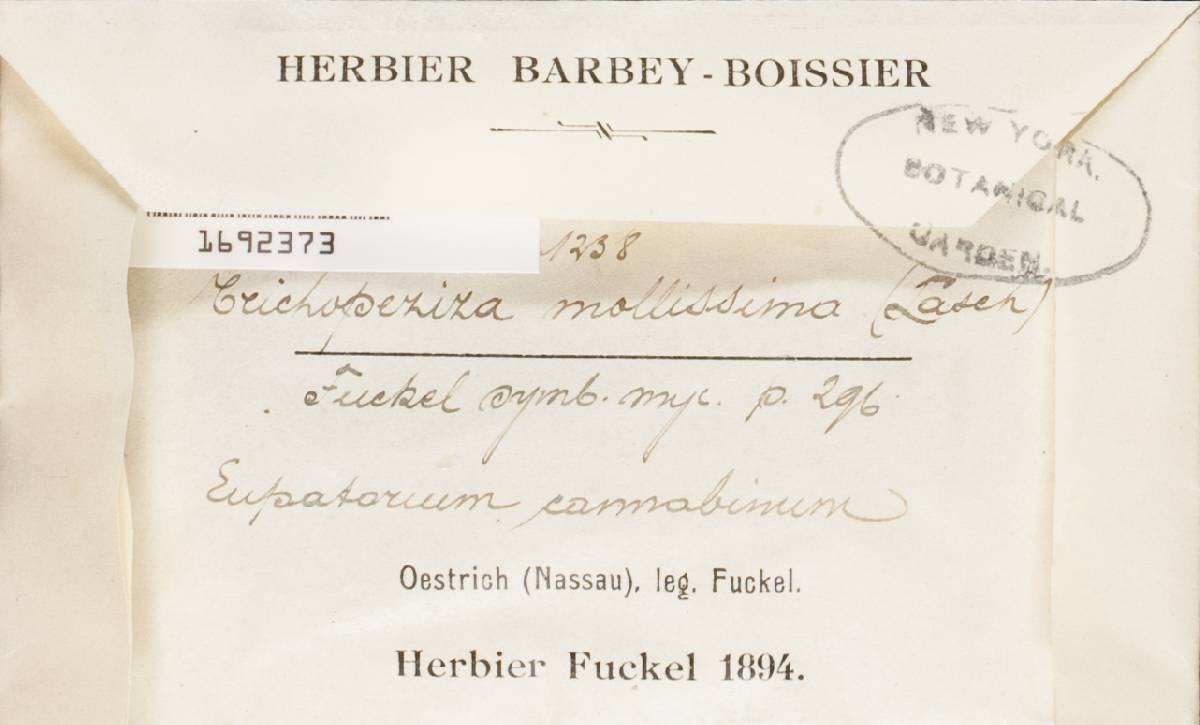 HERBIER BARBEY-BOISSIER
NEW YORK
BOTANICAL
GARDEN.
1692373
1238
Trichopeziza mollissima (Lasch)
Fuckel symb. myc. p. 296
Eupatorium cannabinum
Oestrich (Nassau), leg. Fuckel.
Herbier Fuckel 1894.